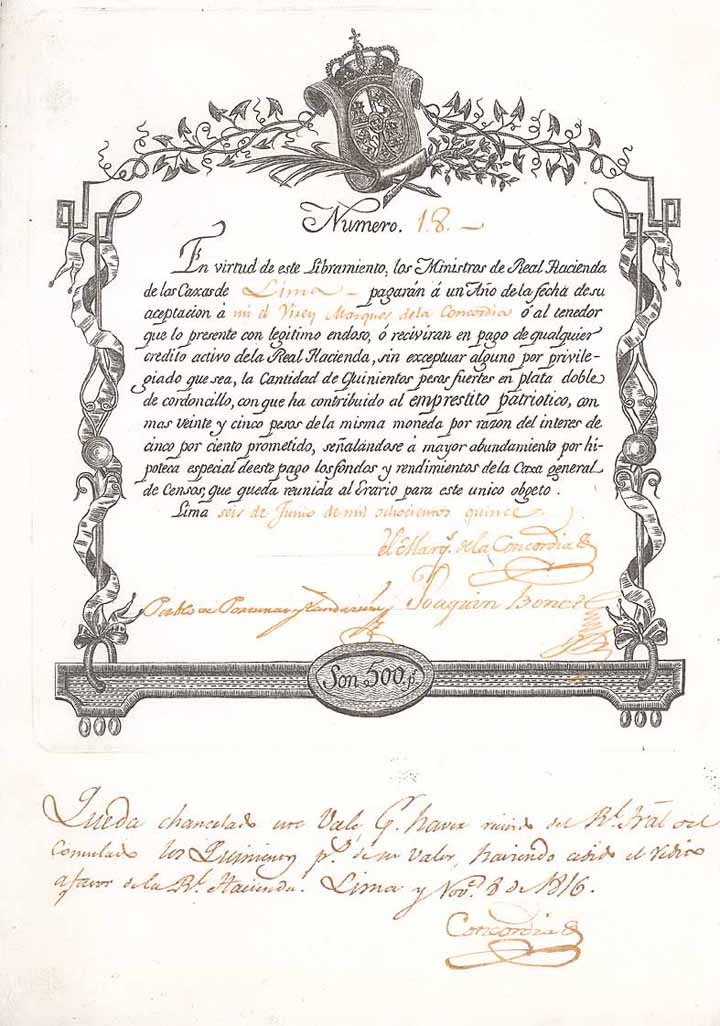 Numero. 18.
En virtud de este Libramiento, los Ministros de Real Hacienda
de las Caxas de Lima pagarán á un Año de la fecha de su
aceptacion á mi el Virey Marques de la Concordia ó al tenedor
que lo presente con legitimo endoso, ó reciviran en pago de qualquier
credito activo de la Real Hacienda, sin exceptuar alguno por privile-
giado que sea, la Cantidad de Quinientos pesos fuertes en plata doble
de cordoncillo, con que ha contribuido al emprestito patriotico, con
mas veinte y cinco pesos de la misma moneda por razon del interes de
cinco por ciento prometido, señalándose á mayor abundamiento por hi-
poteca especial de este pago los fondos y rendimientos de la Caxa general
de Censos, que queda reunida al Erario para este unico obgeto.
Lima seis de Junio de mil ochocientos quince
el Marqs. de la Concordia
Pablo de Joaquin Bonet
Son 500. ps.
Queda chancelado este Vale pr. haver del Rl. Tral. del
Consulado los Quinientos ps. de su valor, haviendo cedido el
a favor de la Rl. Hacienda. Lima y Nove. 8 de 1816.
Concordia